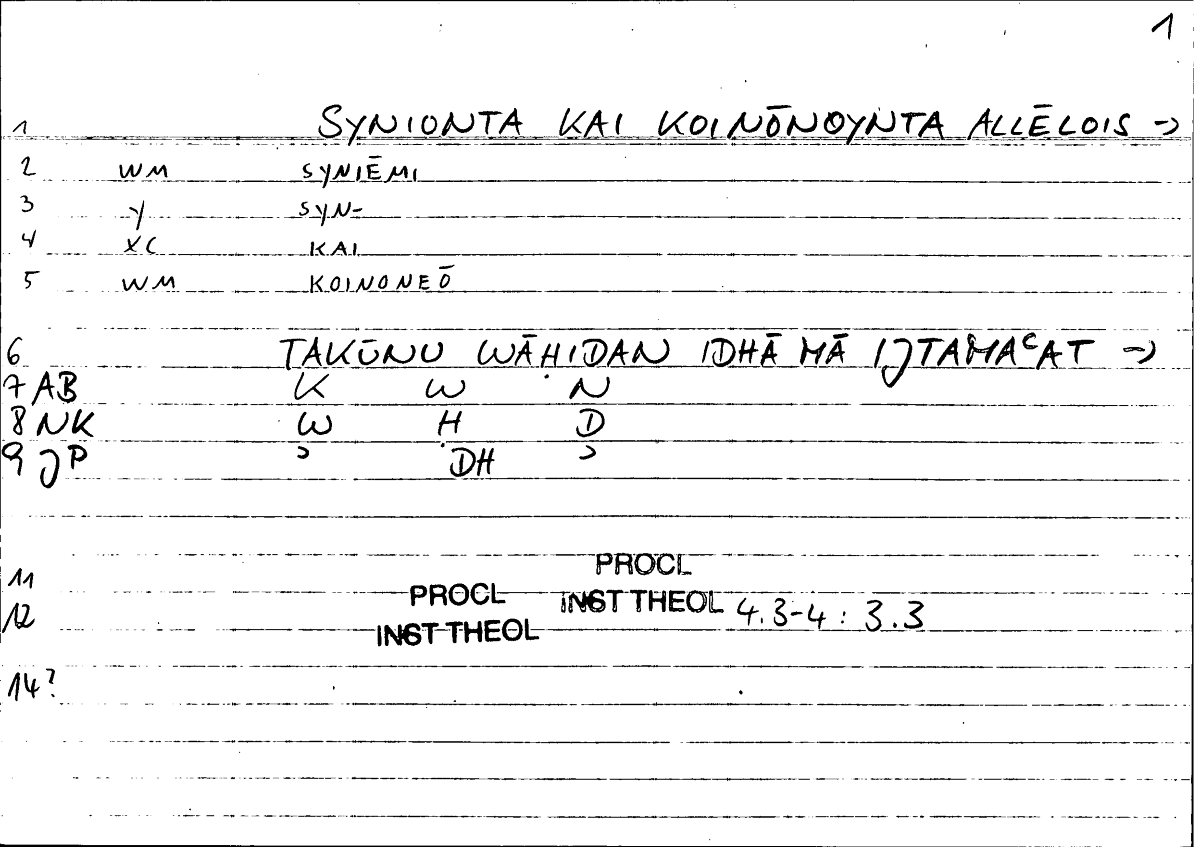 1
1 SYNIONTA KAI KOINŌNOYNTA ALLĒLOIS →
2 WM SYNIĒMI
3 Y SYN-
4 XC KAI
5 WM KOINONEŌ
6 TAKŪNU WĀḤIDAN IDHĀ MĀ IJTAMAʿAT →
7 AB K W N
8 NK W Ḥ D
9 JP ʾ DH ʾ
PROCL
11 PROCL INST THEOL 4.3-4 : 3.3
12 INST THEOL
14?